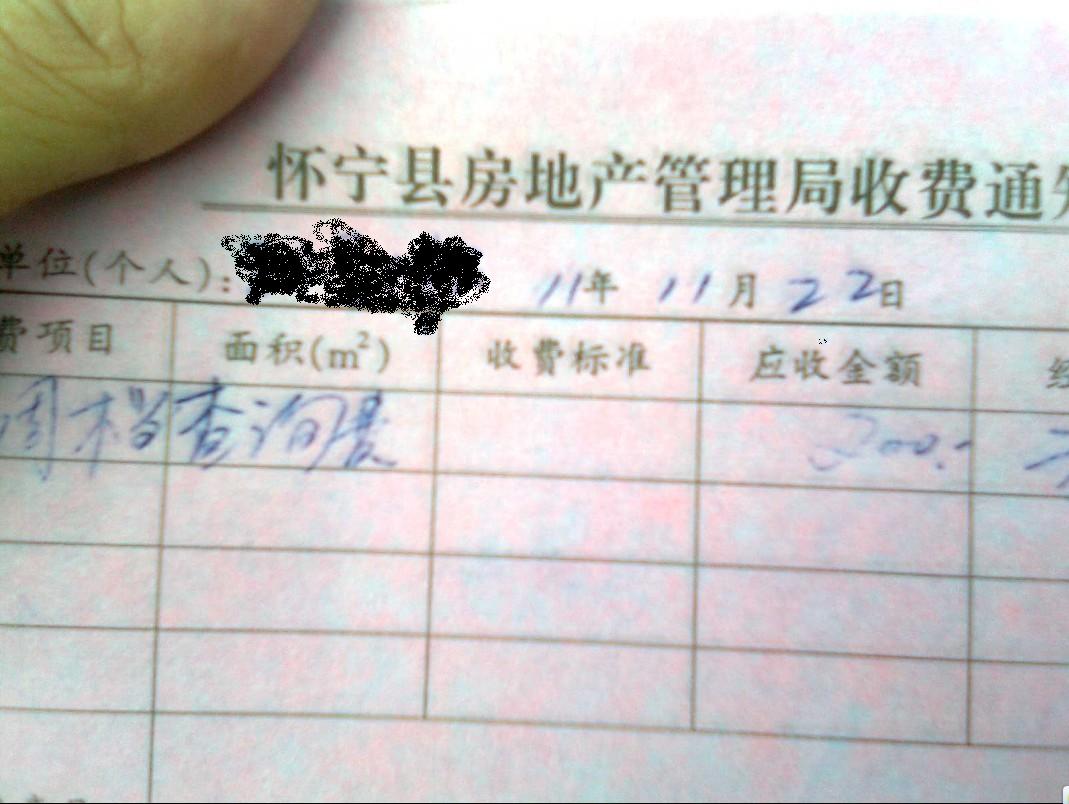 怀宁县房地产管理局收费通知
单位(个人): 11年 11月 22日
费项目 面积(m²) 收费标准 应收金额 经
档查询费 200.-